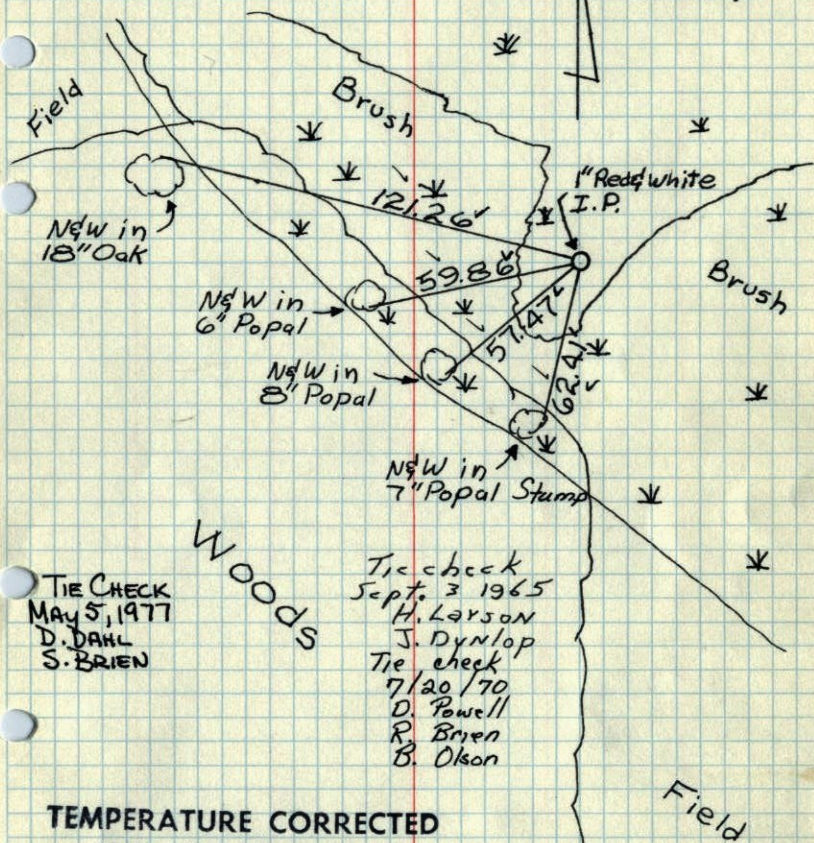 Field
Brush
1" Red & White
I.P.
121.26
N&W in
18" Oak
59.86
Brush
N&W in
6" Popal
57.47
62.41
N&W in
8" Popal
N&W in
7" Popal Stump
Woods
TIE CHECK
MAY 5, 1977
D. DAHL
S. BRIEN
Tie check
Sept. 3 1965
H. Larson
J. Dynlop
Tie check
7/20/70
D. Powell
R. Brien
B. Olson
Field
TEMPERATURE CORRECTED